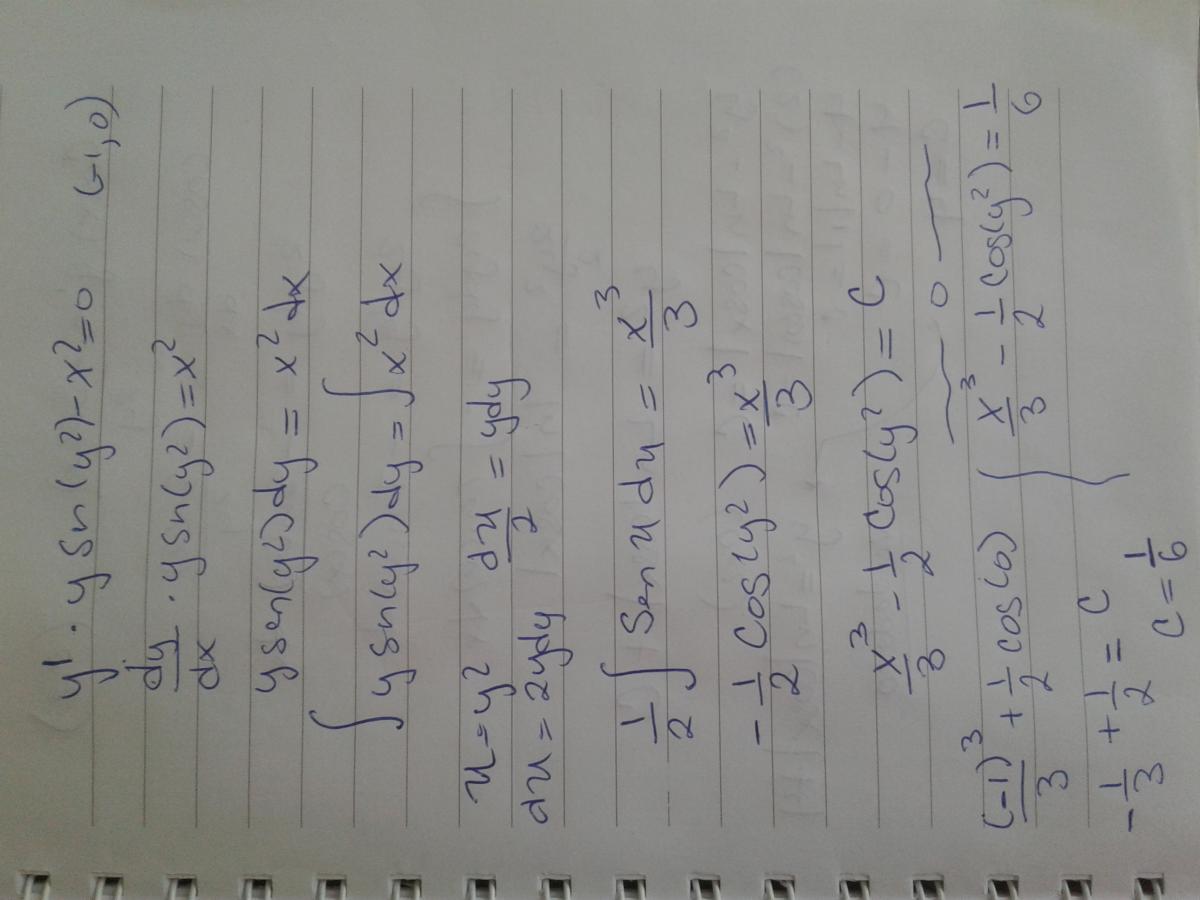 y' · y sen(y²) - x² = 0 (-1, 0)
dy/dx · y sen(y²) = x²
y sen(y²) dy = x² dx
∫ y sen(y²) dy = ∫ x² dx
u = y²
du = 2ydy du/2 = ydy
1/2 ∫ sen u du = x³/3
-1/2 cos(y²) = x³/3
x³/3 - 1/2 cos(y²) = C
—— 0 ——
(-1)³/3 + 1/2 cos(0) x³/3 - 1/2 cos(y²) = 1/6
-1/3 + 1/2 = C
C = 1/6